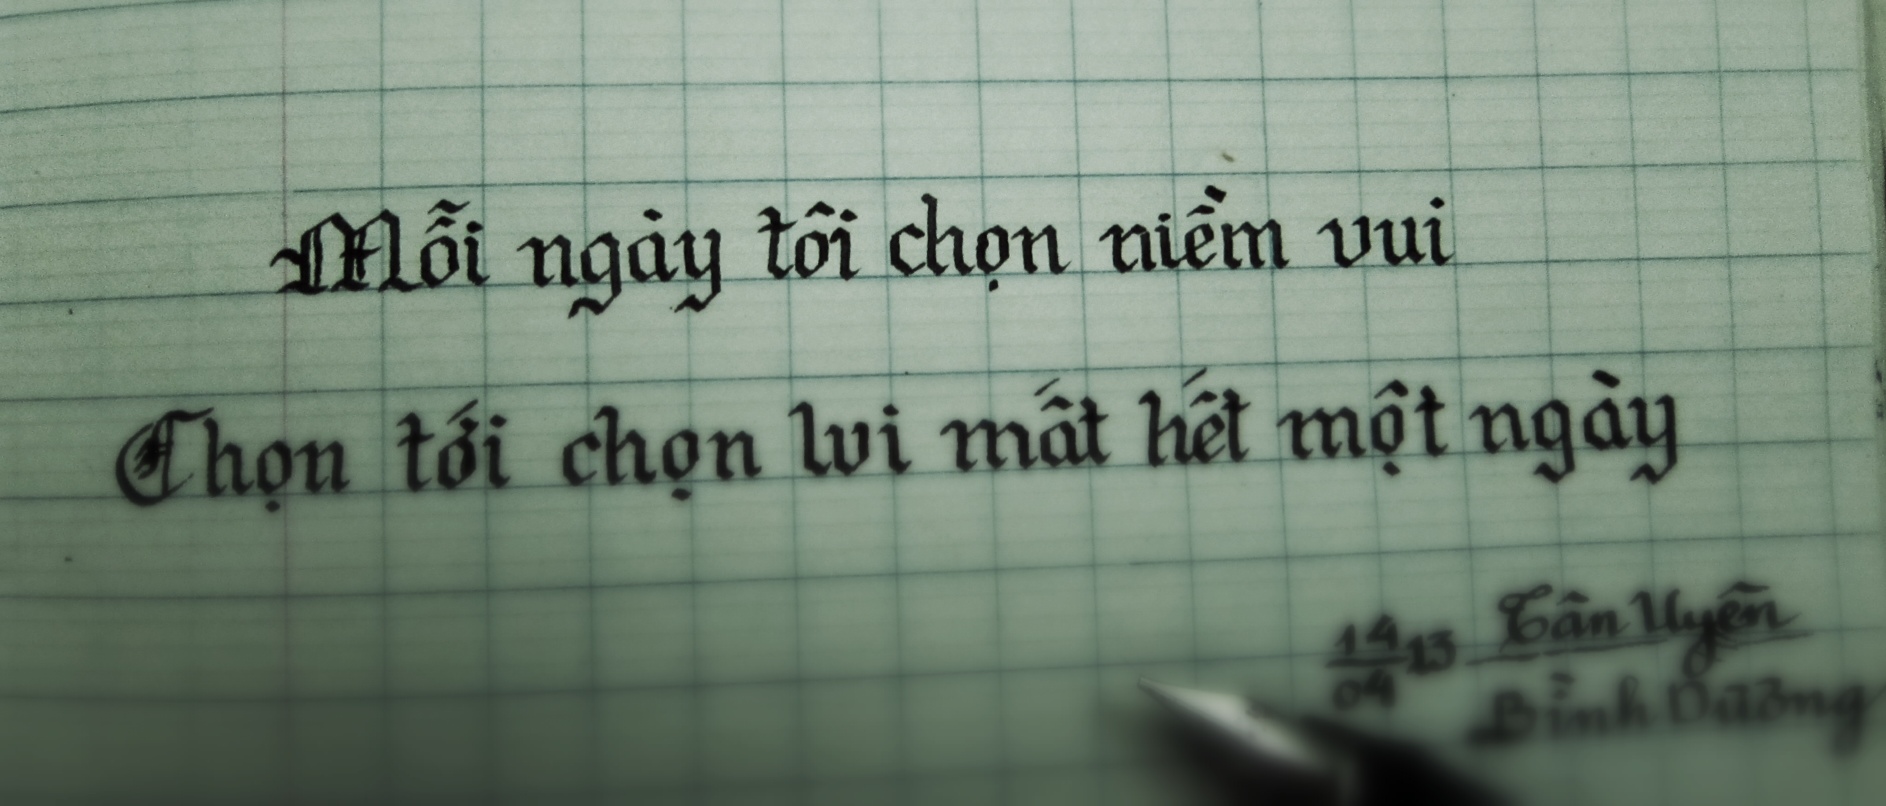 Mỗi ngày tôi chọn niềm vui
Chọn tới chọn lui mất hết một ngày
14/04 13 Tân Uyên
Bình Dương